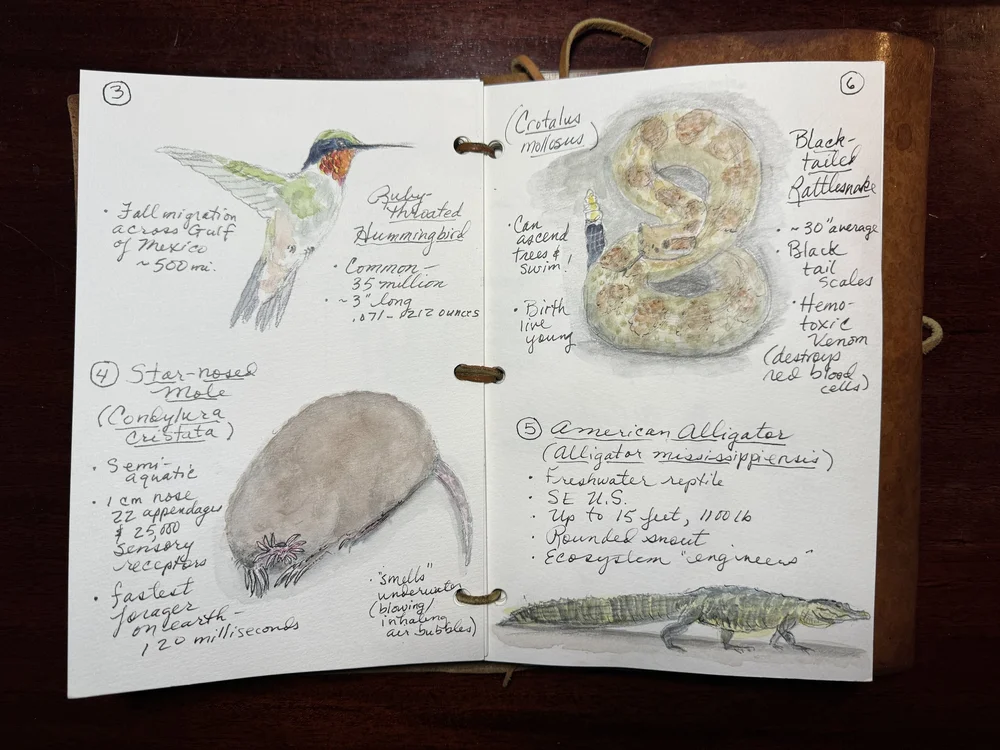 3
• Fall migration
across Gulf
of Mexico
~500 mi.
Ruby
throated
Hummingbird
• Common –
35 million
• ~3" long
.071 – .212 ounces
4 Star-nosed
Mole
(Condylura
cristata)
• Semi-
aquatic
• 1 cm nose
22 appendages
& 25,000
sensory
receptors
• fastest
forager
on earth –
120 milliseconds
• "smells"
underwater
(blowing/
inhaling
air bubbles)
6
(Crotalus
molossus)
• Can
ascend
trees &
swim!
• Birth
live
young
Black-
tailed
Rattlesnake
• ~30" average
• Black
tail
scales
• Hemo-
toxic
Venom
(destroys
red blood
cells)
5 American Alligator
(Alligator mississippiensis)
• Freshwater reptile
• SE U.S.
• Up to 15 feet, 1100 lb
• Rounded snout
• Ecosystem "engineers"